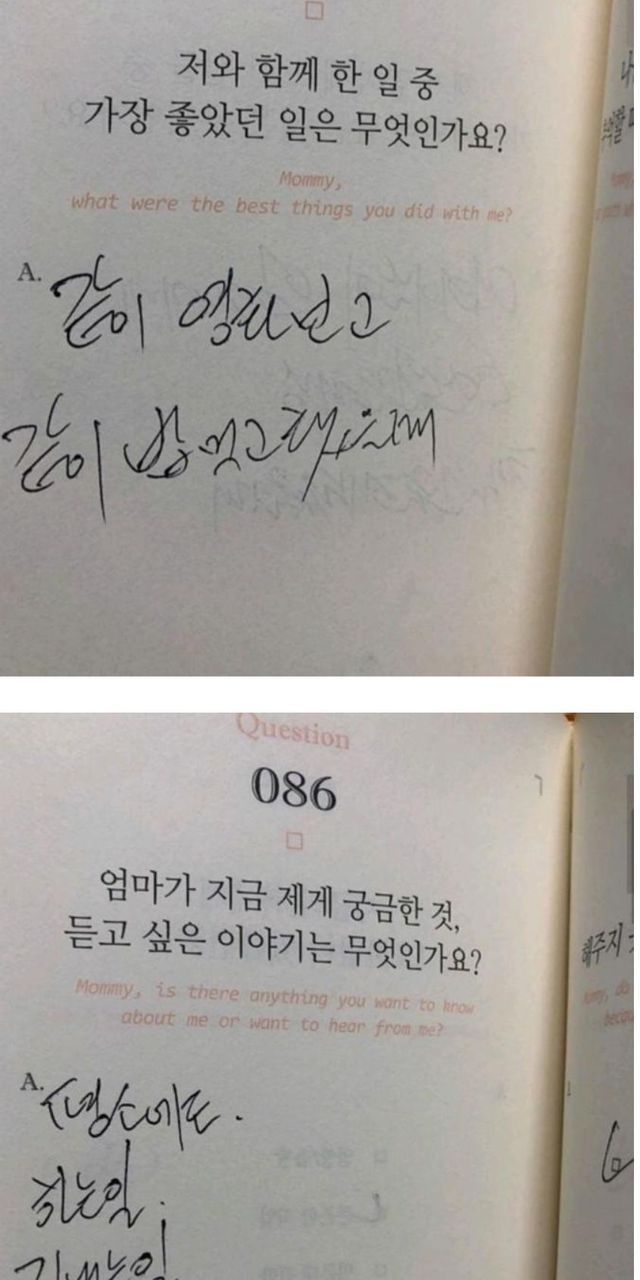 저와 함께 한 일 중
가장 좋았던 일은 무엇인가요?
Mommy,
what were the best things you did with me?
A. 같이 영화보고
같이 밥먹고
Question
086
엄마가 지금 제게 궁금한 것,
듣고 싶은 이야기는 무엇인가요?
Mommy, is there anything you want to know
about me or want to hear from me?
A. 평소에도.
하는일.
지내는일
해주지